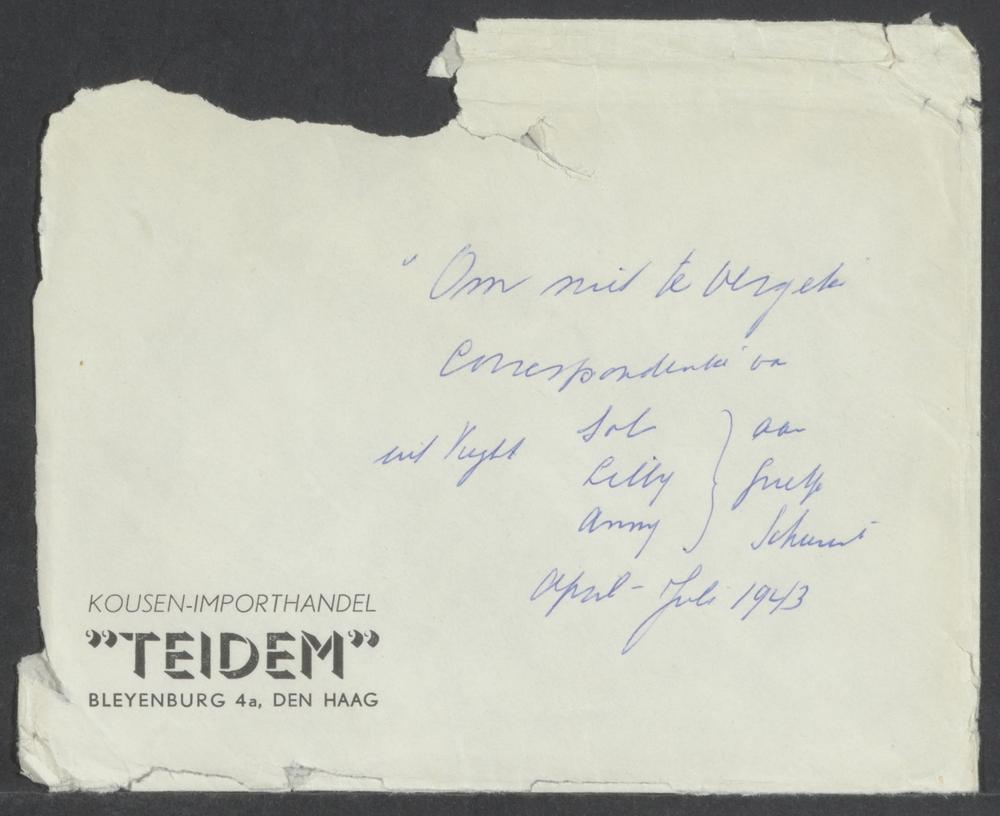 " Om niet te vergeten
Correspondentie van
uit Vught
Sol
Lilly
Anny
aan
April - Juli 1943
KOUSEN-IMPORTHANDEL
"TEIDEM"
BLEYENBURG 4a, DEN HAAG